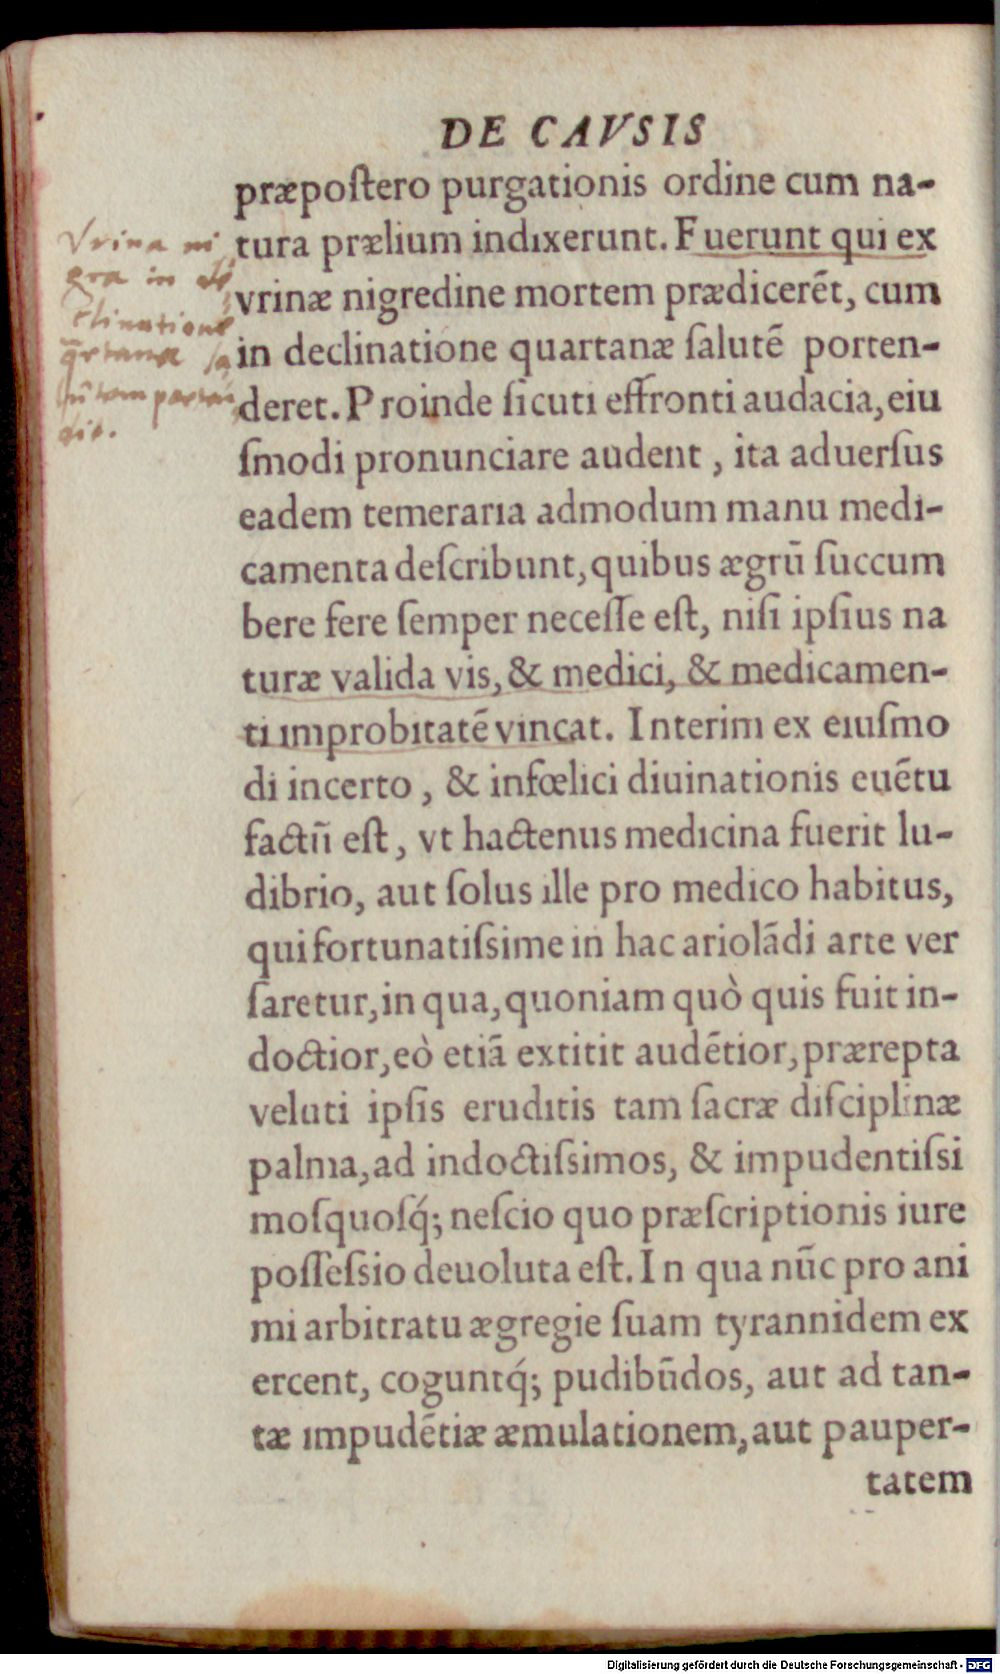 DE CAVSIS
præpoſtero purgationis ordine cum na-
tura prælium indixerunt. Fuerunt qui ex
vrinæ nigredine mortem prædicerēt, cum
in declinatione quartanæ ſalutē porten-
deret. Proinde ſicuti effronti audacia, eiu
ſmodi pronunciare audent, ita aduerſus
eadem temeraria admodum manu medi-
camenta deſcribunt, quibus ægrū ſuccum
bere fere ſemper neceſſe eſt, niſi ipſius na
turæ valida vis, & medici, & medicamen-
ti improbitatē vincat. Interim ex eiuſmo
di incerto, & infœlici diuinationis euētu
factū eſt, vt hactenus medicina fuerit lu-
dibrio, aut ſolus ille pro medico habitus,
qui fortunatiſsime in hac ariolādi arte ver
ſaretur, in qua, quoniam quò quis fuit in-
doctior, eò etiā extitit audētior, prærepta
veluti ipſis eruditis tam ſacræ diſciplinæ
palma, ad indoctiſsimos, & impudentiſsi
moſquoſq́; neſcio quo præſcriptionis iure
poſſeſsio deuoluta eſt. In qua nūc pro ani
mi arbitratu ægregie ſuam tyrannidem ex
ercent, coguntq́; pudibūdos, aut ad tan-
tæ impudētiæ æmulationem, aut pauper-
tatem
Vrina ni
gra in de
clinatione
q̄rtanæ sa
lutem porten
dit.
Digitalisierung gefördert durch die Deutsche Forschungsgemeinschaft - DFG